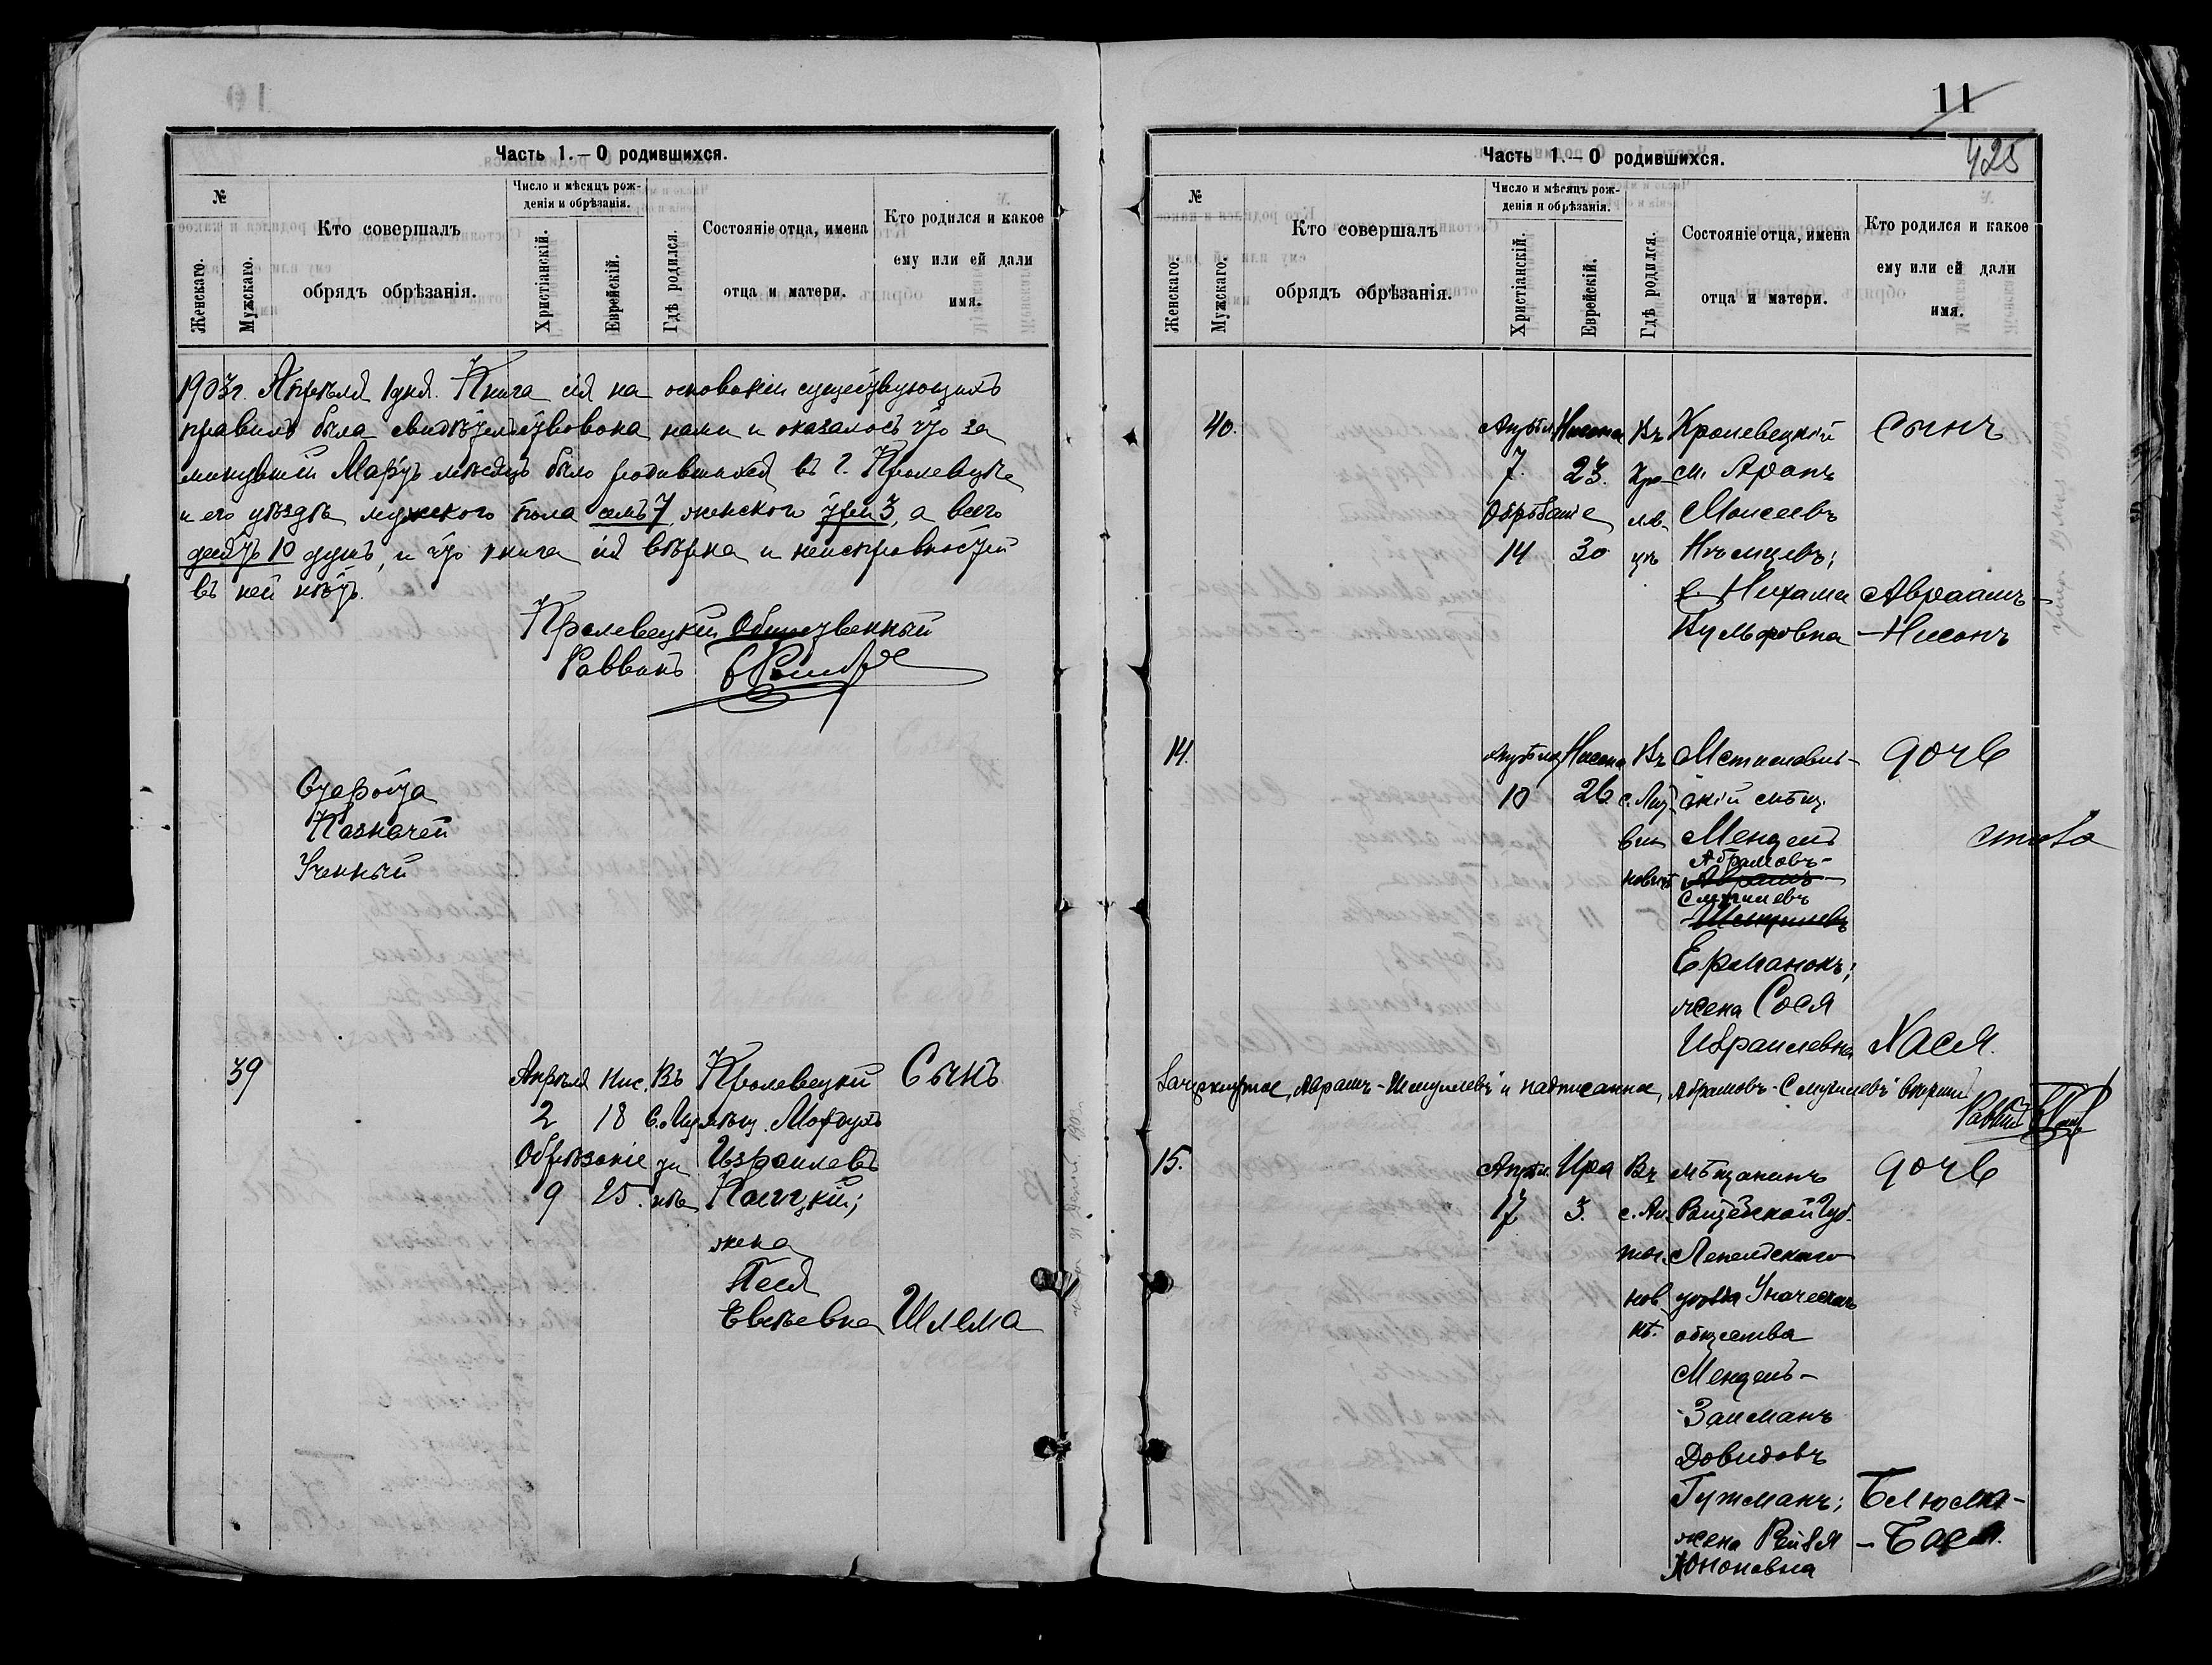 Часть 1.—О родившихся.
№
Женскаго.
Мужскаго.
Кто совершалъ
обрядъ обрѣзанія.
Число и мѣсяцъ рож-
денія и обрѣзанія.
Христіанскій.
Еврейскій.
Гдѣ родился.
Состояніе отца, имена
отца и матери.
Кто родился и какое
ему или ей дали
имя.
1903г. Апрѣля 1 дня. Книга сія на основаніи существующихъ
правилъ была свидѣтельствована нами и оказалось что за
минувшій Мартъ мѣсяцъ было родившихся въ г. Кролевцѣ
и его уѣздѣ мужского пола семь 7, женского три 3, а всего
десять 10 душъ, и что книга сія вѣрна и неисправностей
въ ней нѣтъ.
Кролевецкій Общественный
Раввинъ
Староста
Казначей
Ученый
39 Апрѣля Нис. Въ Кролевецкій Сынъ
2 18 мѣщ. Мордухъ
Обрѣзаніе Израилевъ
9 25
жена
Песя
Евсѣевна Шлема
11
425
Часть 1.—О родившихся.
№
Женскаго.
Мужскаго.
Кто совершалъ
обрядъ обрѣзанія.
Число и мѣсяцъ рож-
денія и обрѣзанія.
Христіанскій.
Еврейскій.
Гдѣ родился.
Состояніе отца, имена
отца и матери.
Кто родился и какое
ему или ей дали
имя.
40. Апрѣля Нисона Въ Кролевецкій сынъ
7. 23. Кро- м. Аронъ
Обрѣзаніе лев- Моисеевъ
14 30 цѣ
ж. Нихама Авраамъ-
Вульфовна -Нисонъ
14. Апрѣля Нисона Въ Мстиславль- дочь
10 26 с. скій мѣщ.
Мендель
Абрамовъ-
Аврамъ
Смуилевъ
-Шмуилевъ
Ерманокъ;
жена Сося
Израилевна Хася.
Зачеркнутое „Аврамъ-Шмуилевъ" и надписанное „Абрамовъ-Смуилевъ" вѣрно
Раввинъ
15. Апрѣля Ира Въ мѣщанинъ дочь
17 3. Витебской Губ.
Лепельскаго
уѣзда
нов общества
кѣ. Мендель-
-Залманъ
Довидовъ
Гутманъ; Блюма-
жена Рейзя -Бася.
Ононовна